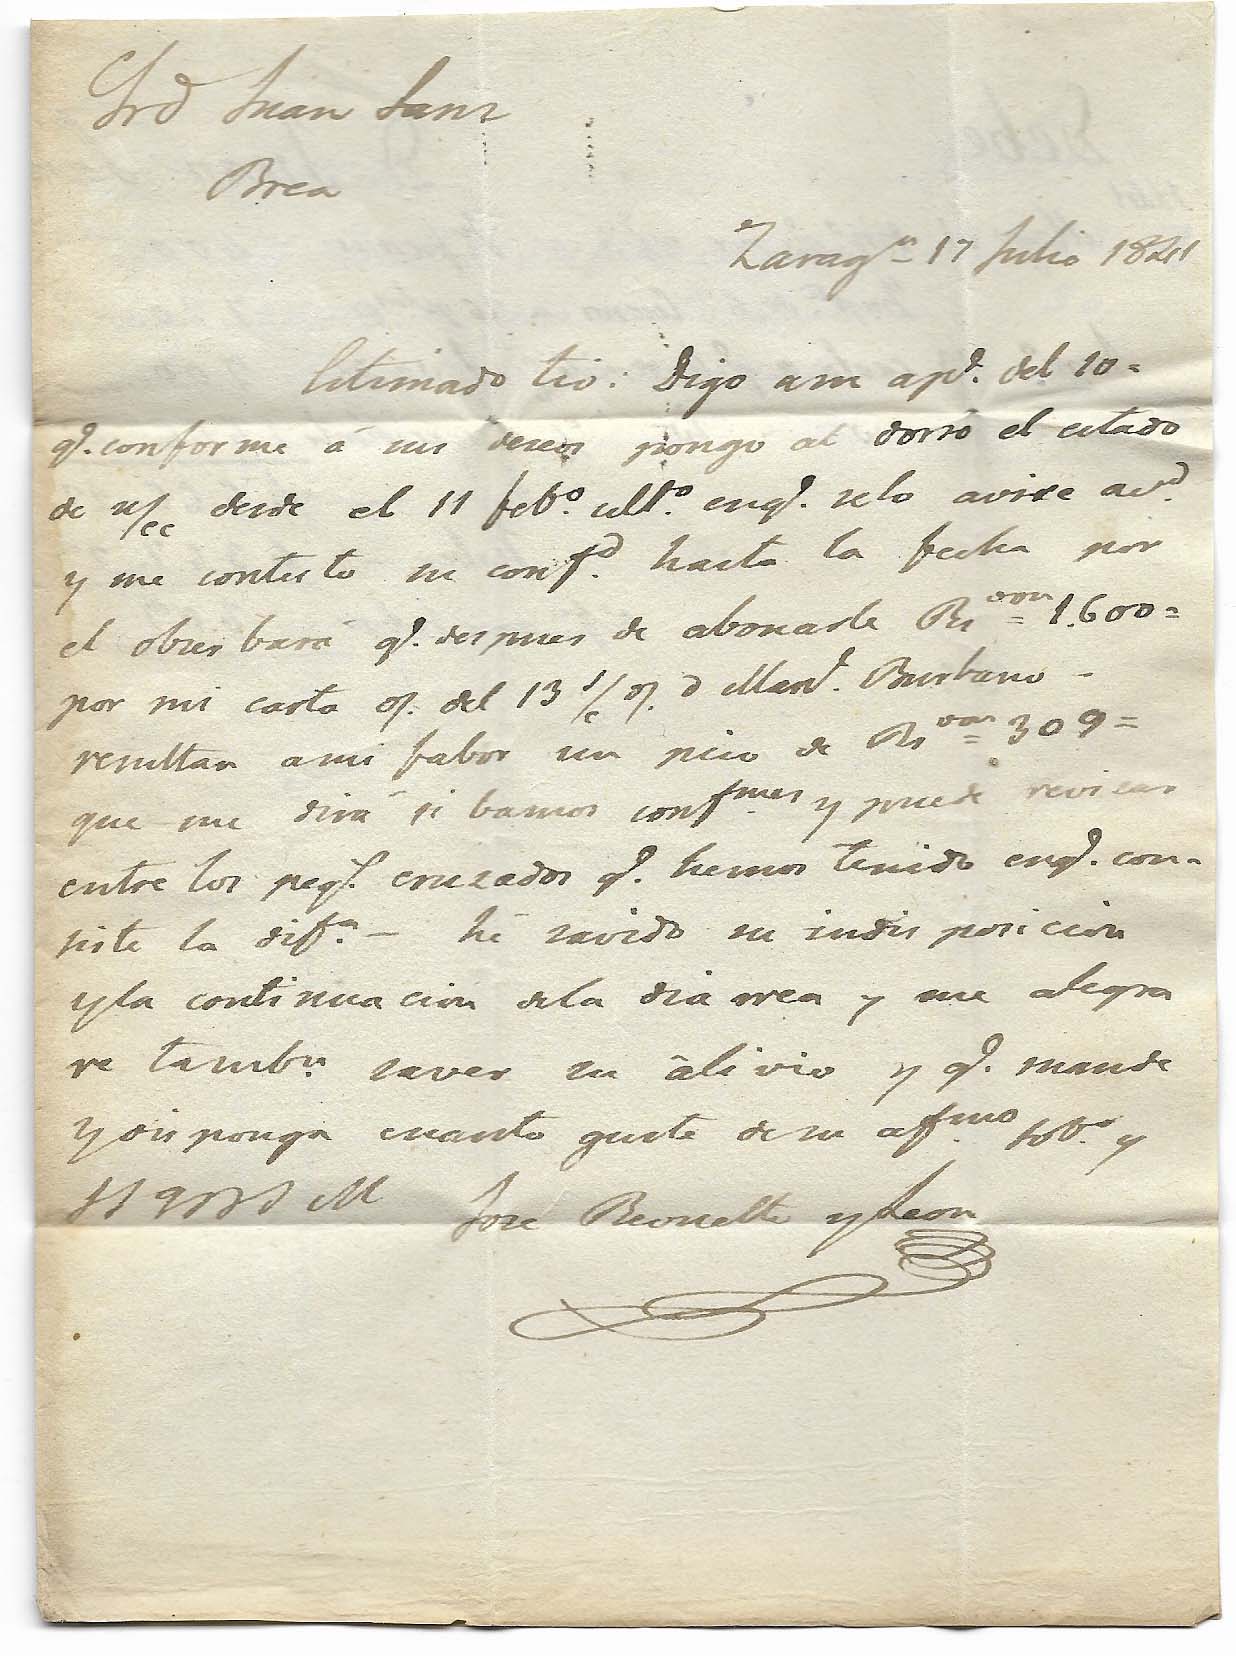 Srd Juan Sanz
Brea
Zaragª 17 Julio 1841
Estimado tio: Digo a su apd. del 10=
q.e conforme á sus deseos pongo al dorso el estado
de n/cc desde el 11 feb.o ult.o enq.e selo avise avd
y me contesto su confd. hasta la fecha por
el obserbará q.e despues de abonarle Rs von 1.600=
por mi carta o/. del 13 s/c o/. d Man.l Burbano -
resultan a mi fabor un pico de Rs von 309=
que me dirá si bamos confmes y puede revisar
entre los peq.s cruzados q.e hemos tenido enq.e con-
siste la dif.a - hé savido su indisposicion
y la continuacion dela diarrea y me alegra
re tambn. saver su álivio y q.e mande
y disponga cuanto guste de su afmo sob.o y
José y Leon